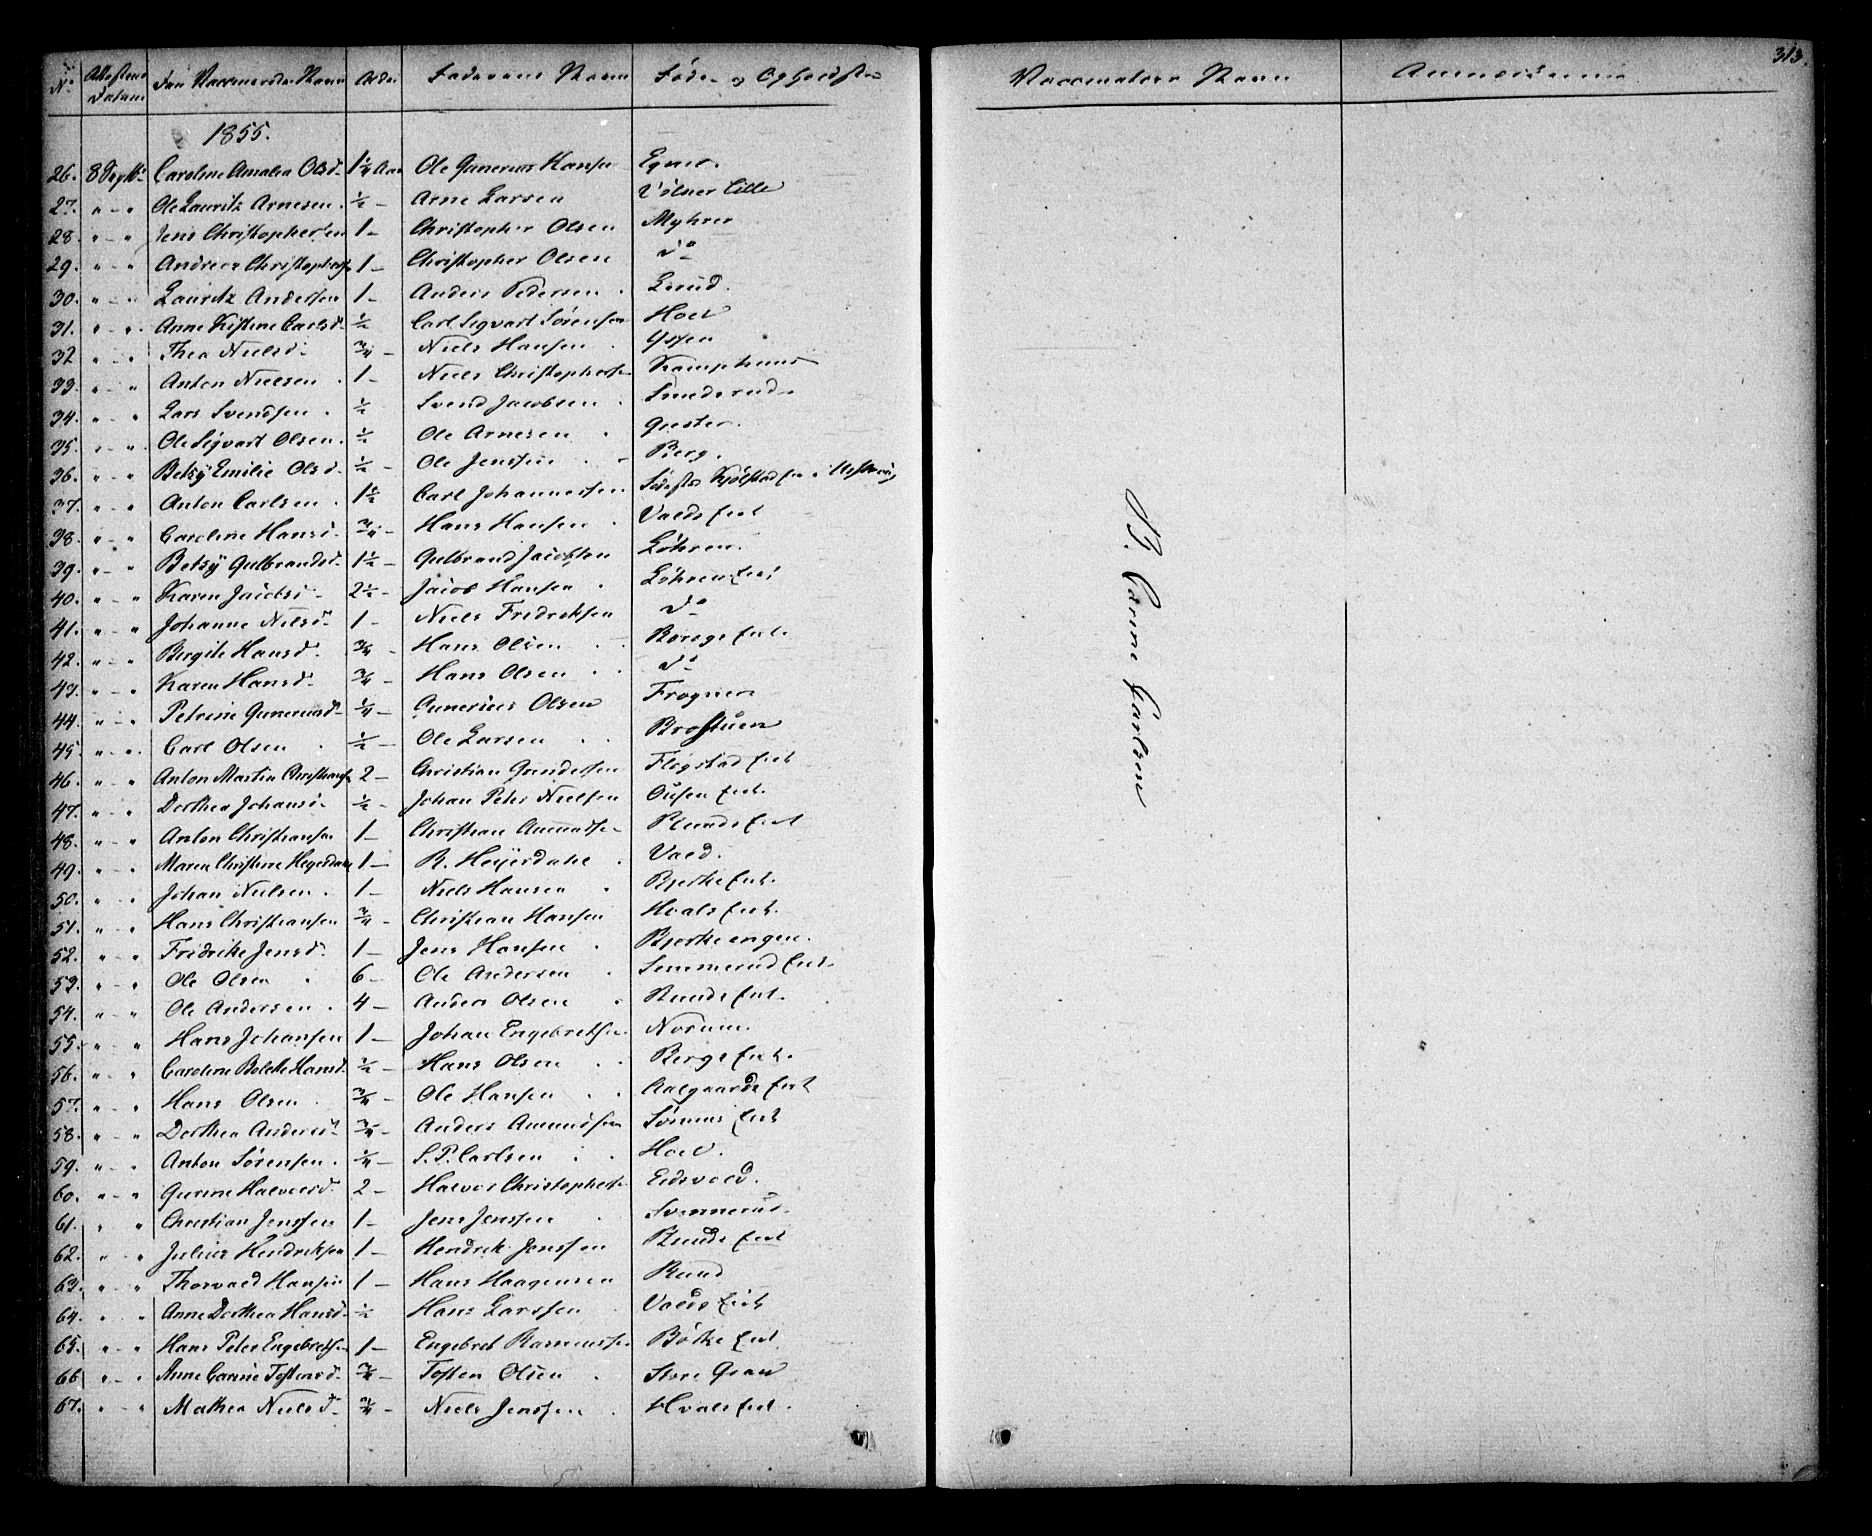 313.
No Attestens Datum Den Vaccineredes Navn Alder Faderens Navn Føde- og Opholdsted Vaccinateurs Navn
1855.
26. 8 Caroline Amalia Olsd. 1¼ Aar Ole Gunerius Hansen
27. " - " Ole Lauritz Arnesen. ½ - Arne Larsen Lille
28. " - " Jens Christophersen 1 - Christopher Olsen Myhrer
29. " - " Andreas 1 - Christopher Olsen do
30. " - " Lauritz Andersen 1 - Anders Pedersen Lerud.
31. " - " Anne Kistine Carlsd. ½ Carl Sigvart Sørensen Hoel
32 " - " Thea Nielsd. ¾ - Niels Hansen
33. " - " Anton Nielsen. 1 - Niels Christophersen
34. " - " Lars Svendsen. ½ Svend Jacobsen Smederud
35. " - " Ole Sigvart Olsen. ½ Ole Arnesen
36. " - " Betsy Emilie Olsd. ½ - Ole Jenssen Berg.
37. " - " Anton Carlsen. 1½ Carl Johannessen
38. " - " Caroline Hansd. ¾ - Hans Hansen Valds Eiet
39. " - " Betsy Gulbrandsd. 1½ - Gulbrand Jacobsen Løhren.
40. " - " Karen Jacobsd. 2½ - Jacob Hansen Løhren Eiet
41. " - " Johanne Nilsd. 1 - Niels Fredriksen do
42. " - " Bergite Hansd. ¾ - Hans Olsen Borege Eiet.
43. " - " Karen Hansd. ¾ - Hans Olsen do
44. " - " Petrine Guneriusd. ¼ - Gunerius Olsen Frogner
45. " - " Carl Olsen ½ - Ole Larsen Brostuen
46. " - " Anton Martin Christiansen 2 - Christian Flogstad Eiet
47. " - " Dorthea Johansd. ½ - Johan Peter Nielsen Ousen Eiet.
48. " - " Anton Christiansen 1 - Christian Amundsen Runds Eiet
49. " - " Maren Christine Heyerdahl 1 - R. Heyerdahl Vald.
50. " - " Johan Nielsen. 1 - Niels Hansen Bjerke Eiet.
51. " - " Hans Christiansen ¾ - Christian Hansen Hvals Eiet.
52. " - " Fredrikke Jensd. 1 - Jens Hansen Bjerkeengen.
53. " - " Ole Olsen 6 - Ole Andersen Semmerud Eiet.
54. " - " Ole Andersen. 4 - Anders Olsen Runds Eiet.
55. " - " Hans Johansen 1 - Johan Engebretsen Norum.
56. " - " Caroline Bolette Hansd. ½ - Hans Olsen Bergs Eiet.
57. " - " Hans Olsen ¾ - Ole Hansen Aalgaards Eiet
58. " - " Dorthea Andersd. ¾ - Anders Amundsen Sørums Eiet
59. " - " Anton Sørensen. ¼ - S. P. Carlsen Hoel.
60. " - " Gurine Halvorsd. 2 - Halvor Christophersen Eidsvold.
61. " " Christian Jenssen 1 - Jens Jenssen
62. " - " Julius Hendriksen 1 - Hendrik Jenssen Runds Eiet
63. " - " Thorvald Hansen 1 - Hans Haagensen Rund
64. " - " Anne Dorthea Hansd. ½ Hans Larssen Valds Eiet
65. " - " Hans Peter Engebretsen 1 - Engebret Rasmussen Børke Eiet
66 " - " Anne Carine Tostensd. ¾ - Tosten Olsen Store Gran
67. " - " Mathea Nielsd. ¾ - Niels Jenssen Hvals Eiet.
B. Carine Carlsen